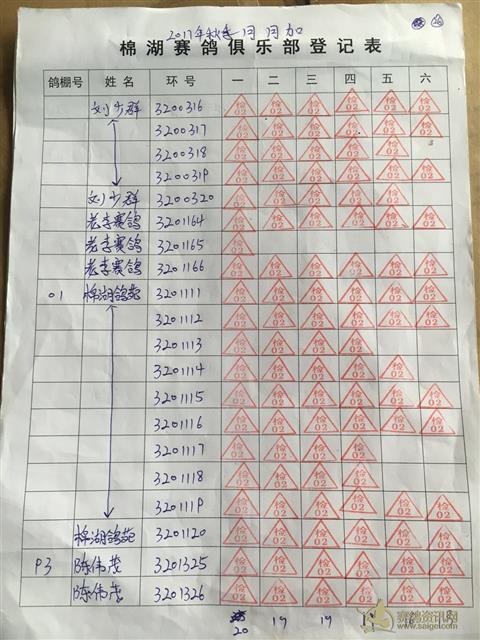 2017年秋季
棉湖赛鸽俱乐部登记表
鸽棚号 姓名 环号 一 二 三 四 五 六
刘少群 3200316 检02 检02 检02 检02 检02 检02
3200317 检02 检02 检02 检02 检02 检02
3200318 检02 检02 检02 检02 检02 检02
3200319 检02 检02 检02 检02 检02 检02
刘少群 3200320 检02 检02 检02 检02 检02
老李赛鸽 3201164 检02 检02 检02 检02 检02 检02
老李赛鸽 3201165 检02
老李赛鸽 3201166 检02 检02 检02 检02 检02 检02
01 棉湖鸽苑 3201111 检02 检02 检02 检02 检02 检02
3201112 检02 检02 检02 检02 检02 检02
3201113 检02 检02 检02 检02
3201114 检02 检02 检02 检02 检02
3201115 检02 检02 检02 检02 检02 检02
3201116 检02 检02 检02 检02 检02 检02
3201117 检02 检02 检02 检02
3201118 检02 检02 检02 检02
3201119 检02 检02 检02 检02 检02 检02
棉湖鸽苑 3201120 检02 检02 检02 检02 检02 检02
P3 陈伟茂 3201325 检02 检02 检02 检02 检02 检02
陈伟茂 3201326 检02 检02 检02 检02 检02 检02
20 19 19
赛鸽资讯网
www.saige.com